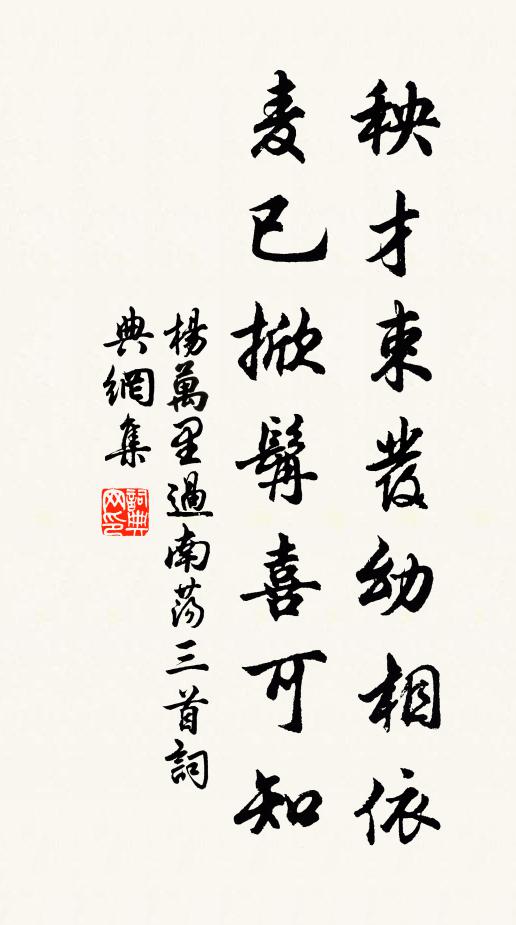 秧才束發幼相依
麦已掀髯喜可知
楊萬里過南蕩三首詞
典網集
詞典
网印